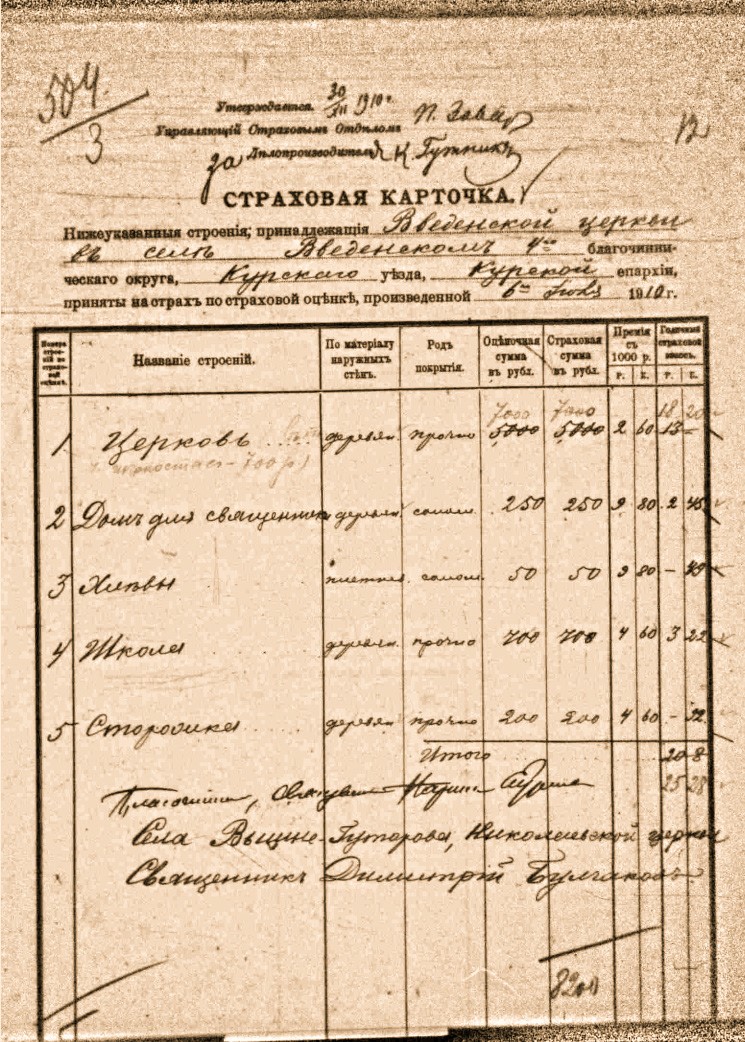 504.
3
12
Утверждается. 30/XII 1910 г.
Управляющій Страховымъ Отдѣломъ
за Дѣлопроизводителя К.
СТРАХОВАЯ КАРТОЧКА.
Нижеуказанныя строенія, принадлежащія Введенской церкви
въ селѣ Введенскомъ 4го благочинни-
ческаго округа, Курскаго уѣзда, Курской епархіи,
приняты на страхъ по страховой оцѣнкѣ, произведенной 6го 1910 г.
Номера строеній по страховой оцѣнкѣ. Названіе строеній. По матеріалу наружныхъ стѣнъ. Родъ покрытія. Оцѣночная сумма въ рубл. Страховая сумма въ рубл. Премія съ 1000 р. Годичный страховой взносъ.
Р. К. Р. К.
7000 7000 18 20
1 Церковь деревян. прочно 5000 5000 2 60 13 –
иконостас – 700 р)
2 Домъ для священника деревян. солом. 250 250 9 80 2 45
3 Хлѣвы плетнев. солом. 50 50 9 80 – 49
4 Школа деревян. прочно 700 700 4 60 3 22
5 Сторожка деревян прочно 200 200 4 60 – 92
Итого 20 8
25 28
Села Вышне-Гуторова, Николаевской церкви
Священникъ Димитрій Булгаковъ
8200